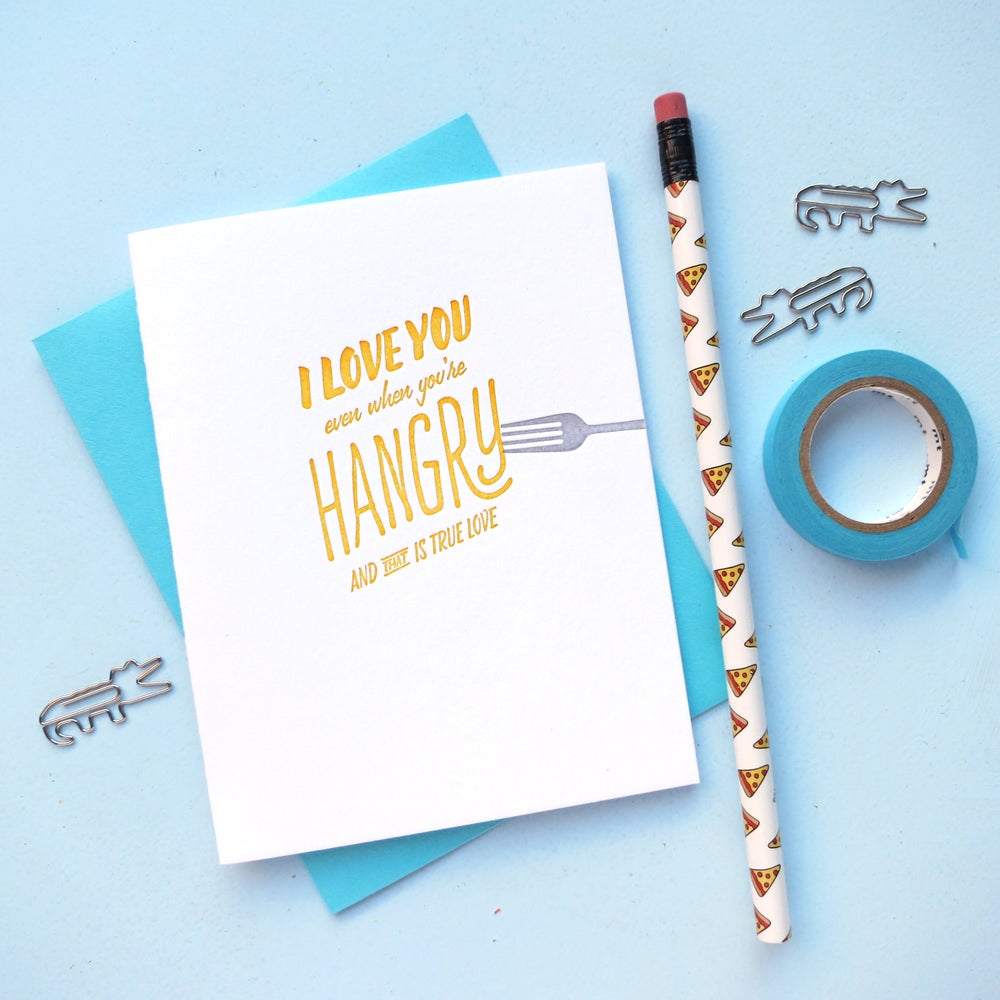 I LOVE YOU
even when you're
HANGRY
AND THAT IS TRUE LOVE
mt